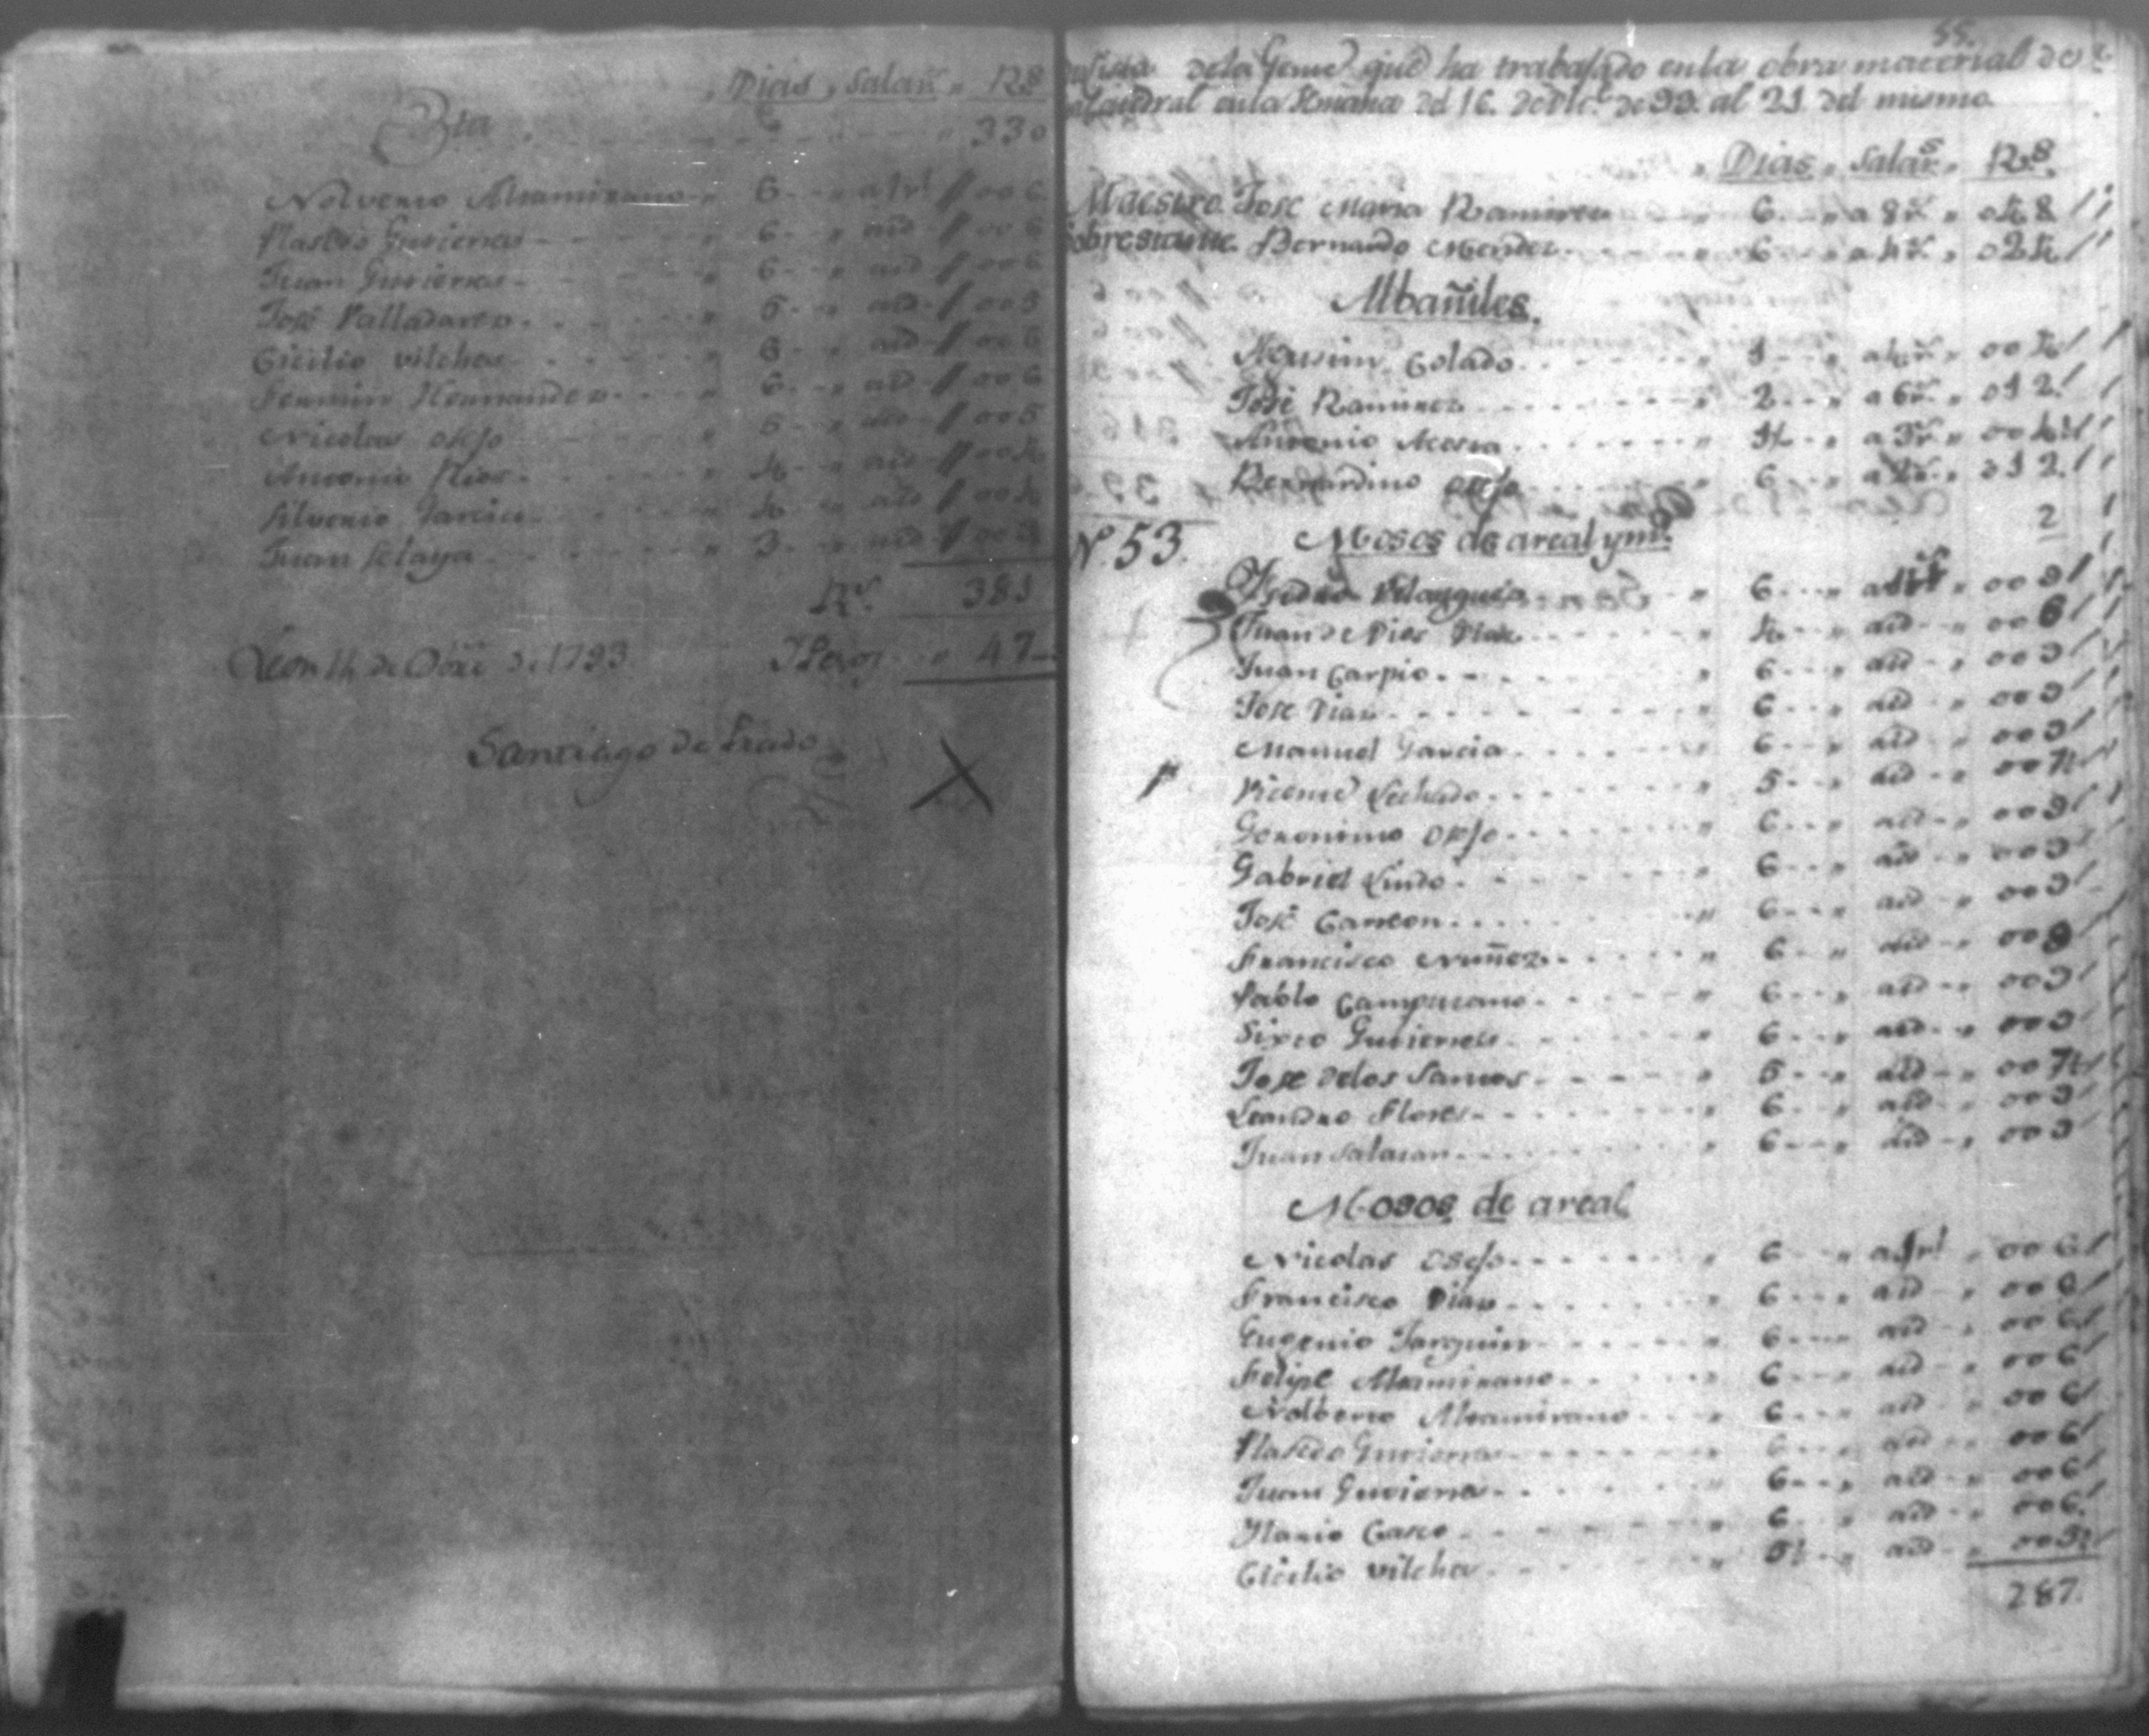 Dias, Salar.s R.s
Bta 330
Nolverto Altamirano 6 a 1 r.l 006
Plasido Gutierres 6 aid 006
Juan Gutierres 6 aid 006
José Valladares 5 aid 005
Cicilio vilches 6 aid 006
Fermin Hernandez 6 aid 006
Nicolas osejo 5 aid 005
Antonio Rios 4 aid 004
Silverio Garcia 4 aid 004
Juan Selaya 3 aid 003
R.s 381
Leon 14 de Dbre de 1793 Pesos 47
Santiago de Prado
55.
Lista dela Gente que ha trabajado enla obra material de
Catedral enla Semana del 16. de Dic.e de 93. al 21 del mismo.
Dias, Salar.s R.s
Maestro. Jose Maria Ramires 6 a 8 r.s 048
Sobrestante. Bernardo Mendez 6 a 4 r.s 024
Albañiles.
Colado 1 a 4 r.s 004
José Ramires 2 a 6 r.s 012
Antonio Acosta 1½ a 3 r.s 004½
Bernardino osejo 6 a 2 r.s 012
2
N.o 53. Mosos de areal y m.o
Velasques 6 009
Juan de Dios Dias 4 aid 006
Juan Carpio 6 aid 009
Jose Dias 6 aid 009
Manuel Garcia 6 aid 009
Vicente Lechado 5 aid 007½
Geronimo osejo 6 aid 009
Gabriel Lindo 6 aid 009
José Canton 6 aid 009
Francisco Nuñez 6 aid 009
Pablo Campusano 6 aid 009
Sixto Gutierres 6 aid 009
Jose delos Santos 5 aid 007½
Leandro Flores 6 aid 009
Juan Salasar 6 aid 009
Mosos de areal
Nicolas osejo 6 a 1 r.l 006
Francisco Dias 6 aid 006
Eugenio Jarquin 6 aid 006
Felipe Altamirano 6 aid 006
Nolberto Altamirano 6 aid 006
Plasido Gutierres 6 aid 006
Juan Gutierres 6 aid 006
Ilario Casco 6 aid 006
Cicilio vilches 5½ aid 005½
287.